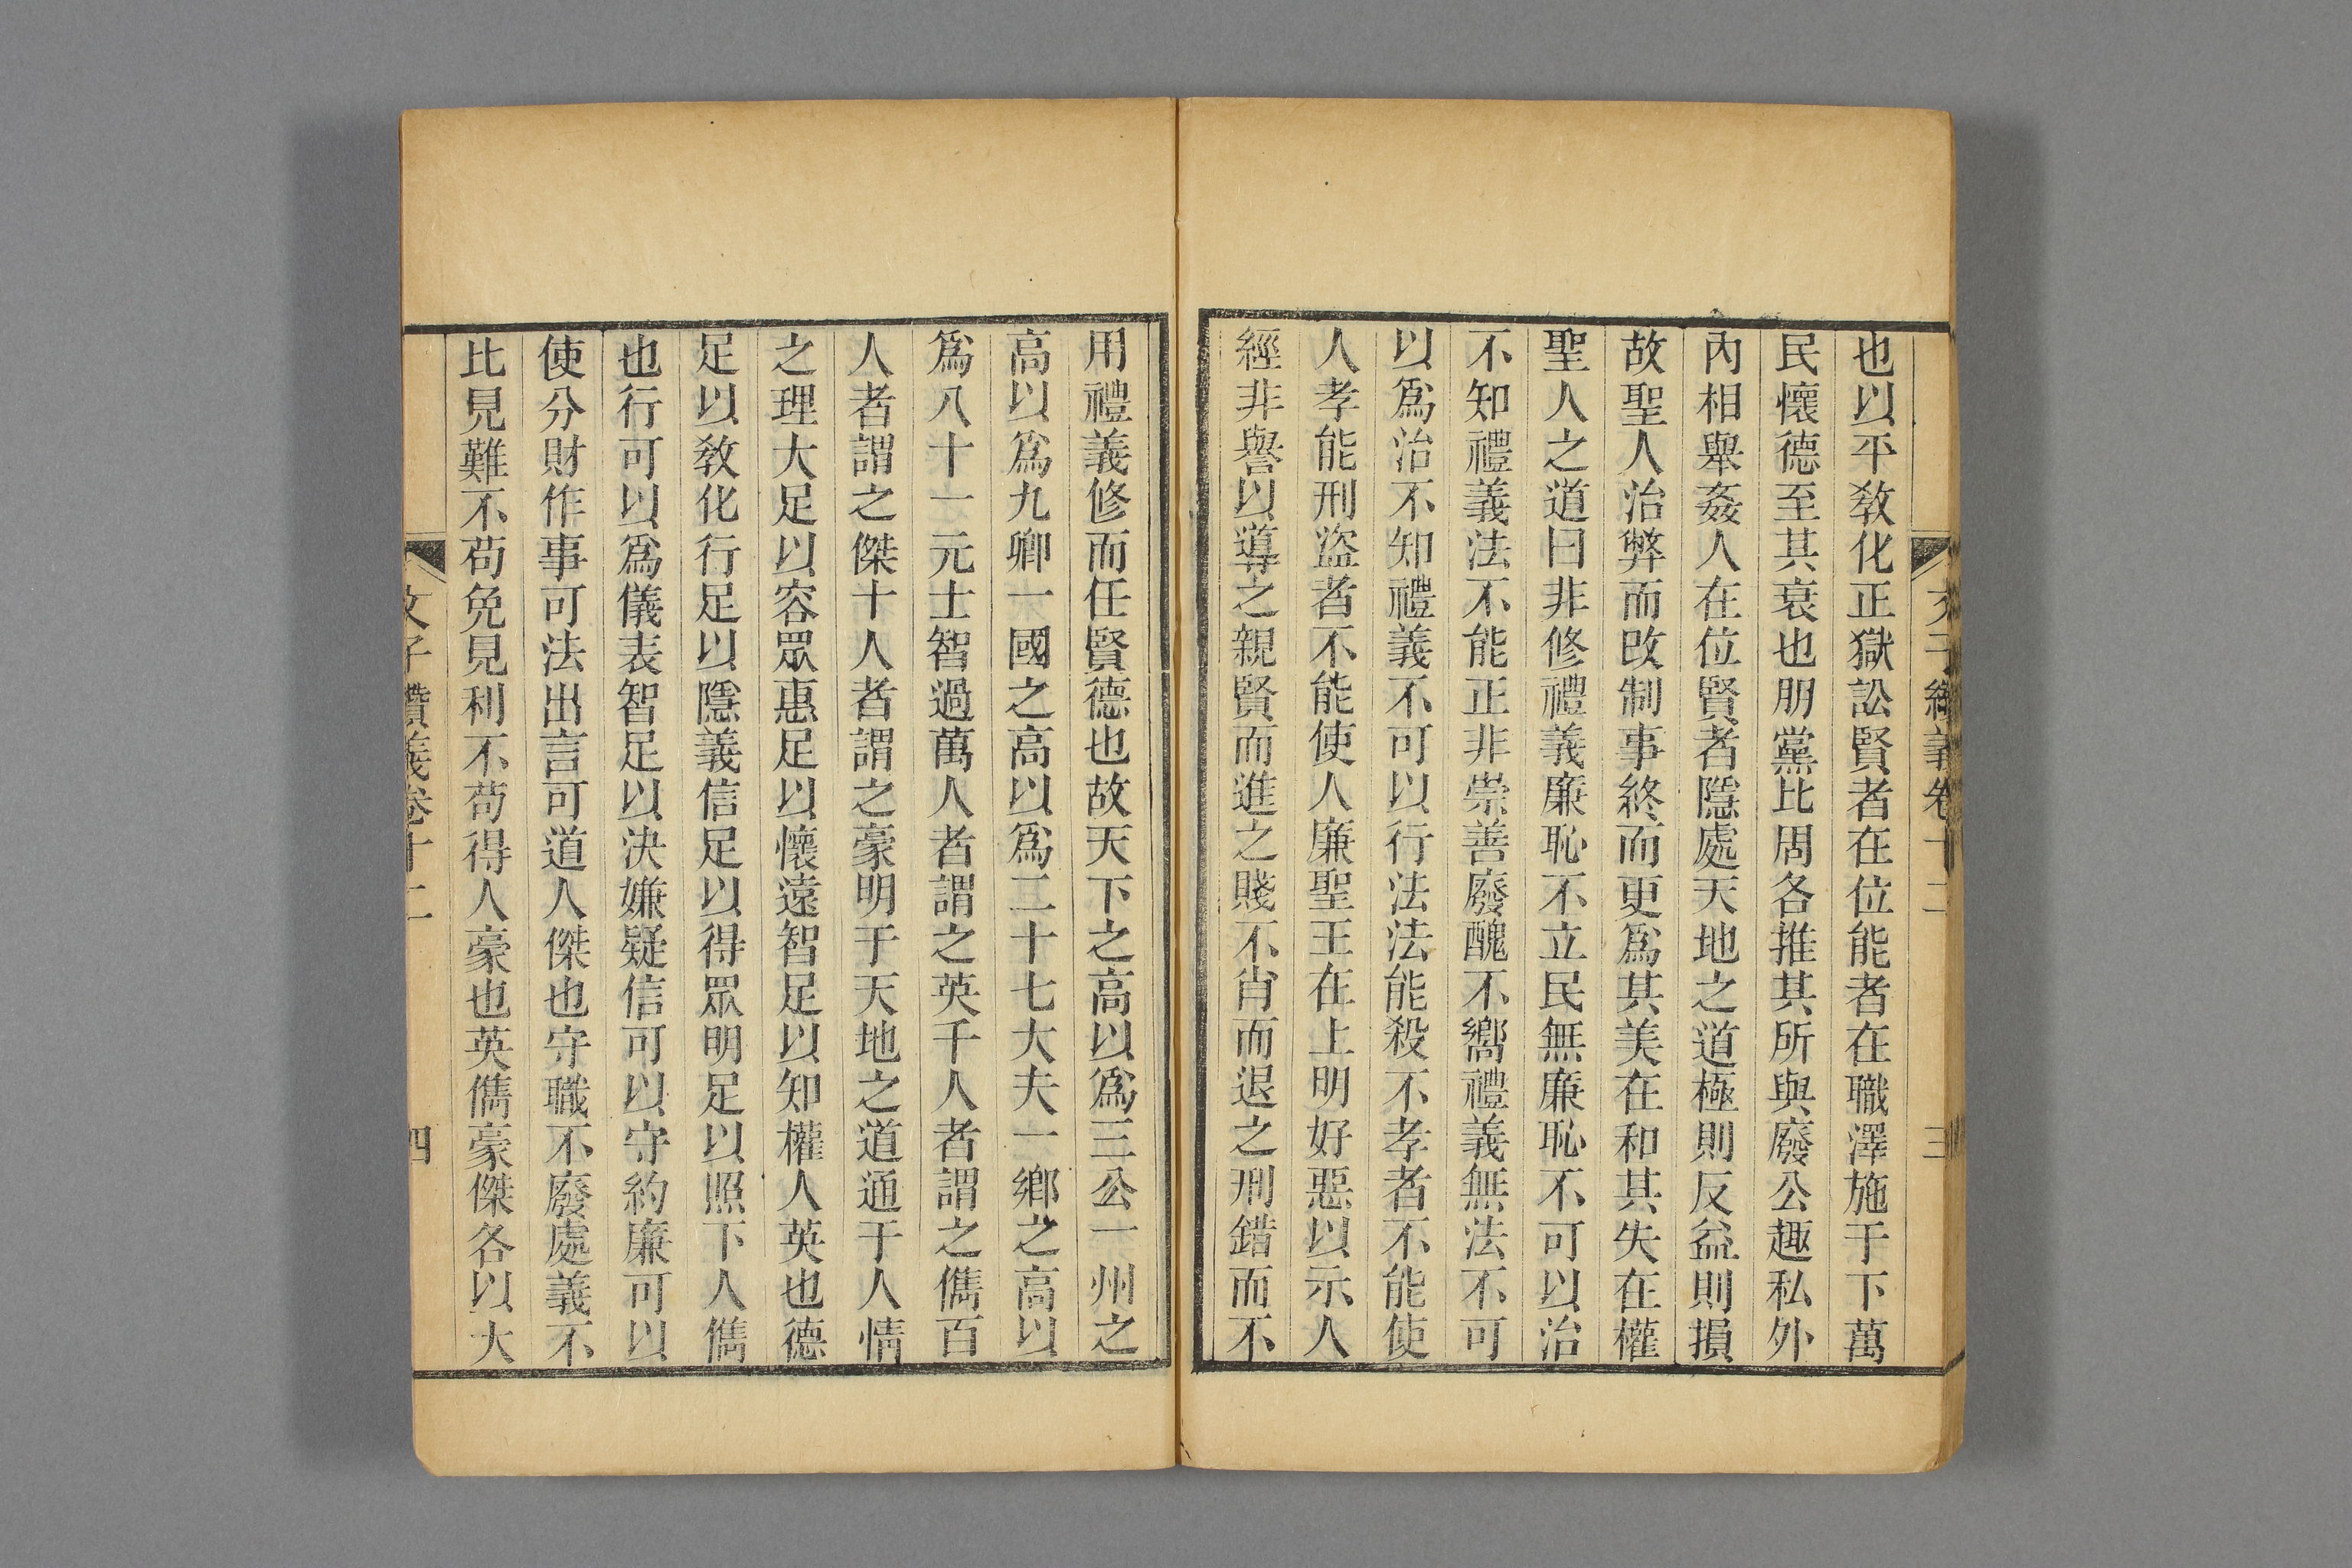 文子纘義卷十二
三
也以平敎化正獄訟賢者在位能者在職澤施于下萬
民懷德至其衰也朋黨比周各推其所與廢公趣私外
內相舉姦人在位賢者隱處天地之道極則反益則損
故聖人治弊而改制事終而更爲其美在和其失在權
聖人之道曰非修禮義廉恥不立民無廉恥不可以治
不知禮義法不能正非崇善廢醜不嚮禮義無法不可
以爲治不知禮義不可以行法法能殺不孝者不能使
人孝能刑盜者不能使人廉聖王在上明好惡以示人
經非譽以導之親賢而進之賤不肖而退之刑錯而不
用禮義修而任賢德也故天下之高以爲三公一州之
高以爲九卿一國之高以爲二十七大夫一鄉之高以
爲八十一元士智過萬人者謂之英千人者謂之儁百
人者謂之傑十人者謂之豪明于天地之道通于人情
之理大足以容眾惠足以懷遠智足以知權人英也德
足以敎化行足以隱義信足以得眾明足以照下人儁
也行可以爲儀表智足以決嫌疑信可以守約廉可以
使分財作事可法出言可道人傑也守職不廢處義不
比見難不苟免見利不苟得人豪也英儁豪傑各以大
文子纘義卷十二
四